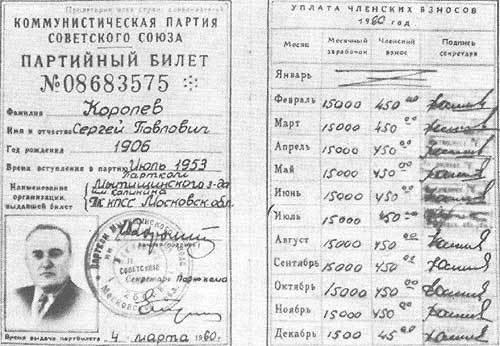 Пролетарии всех стран, соединяйтесь!
КОММУНИСТИЧЕСКАЯ ПАРТИЯ
СОВЕТСКОГО СОЮЗА
ПАРТИЙНЫЙ БИЛЕТ
№08683575
Фамилия Королев
Имя и отчество Сергей Павлович
Год рождения 1906
Время вступления в партию Июль 1953
Парткой
Наименование Мытищинского з-да
организации, им. Калинина
выдавшей билет ГК КПСС Московск обл.
Секретарь Парткома
Время выдачи партбилета 4 марта 1960 г.
УПЛАТА ЧЛЕНСКИХ ВЗНОСОВ
1960 год
Месяц Месячный заработок Членский взнос Подпись секретаря
Январь
Февраль 15000 450 00
Март 15000 450 00
Апрель 15000 450 00
Май 15000 450 00
Июнь 15000 450 00
Июль 15000 450 00
Август 15000 450 00
Сентябрь 15000 450 00
Октябрь 15000 450 00
Ноябрь 15000 450 00
Декабрь 1500 45 00